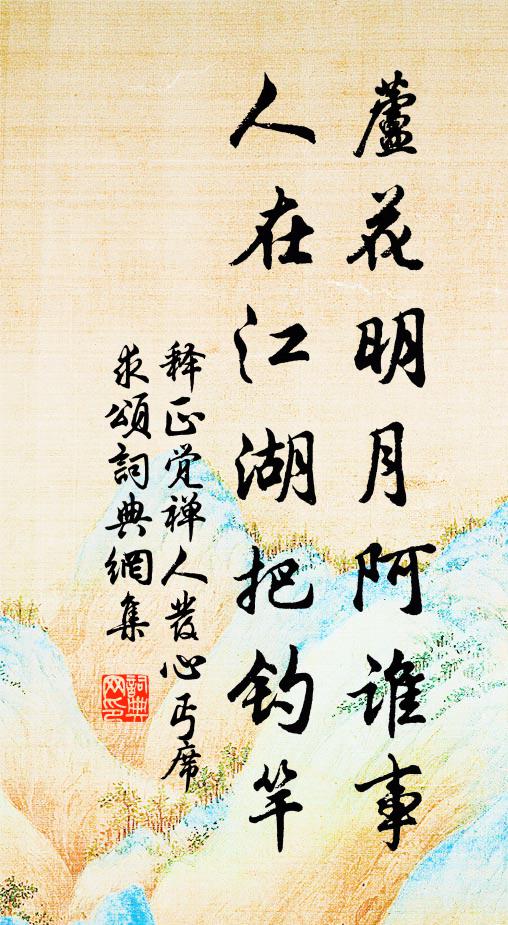 蘆花明月阿谁事
人在江湖把钓竿
释正觉禅人发心丐席
求頌詞典網集
詞典网印